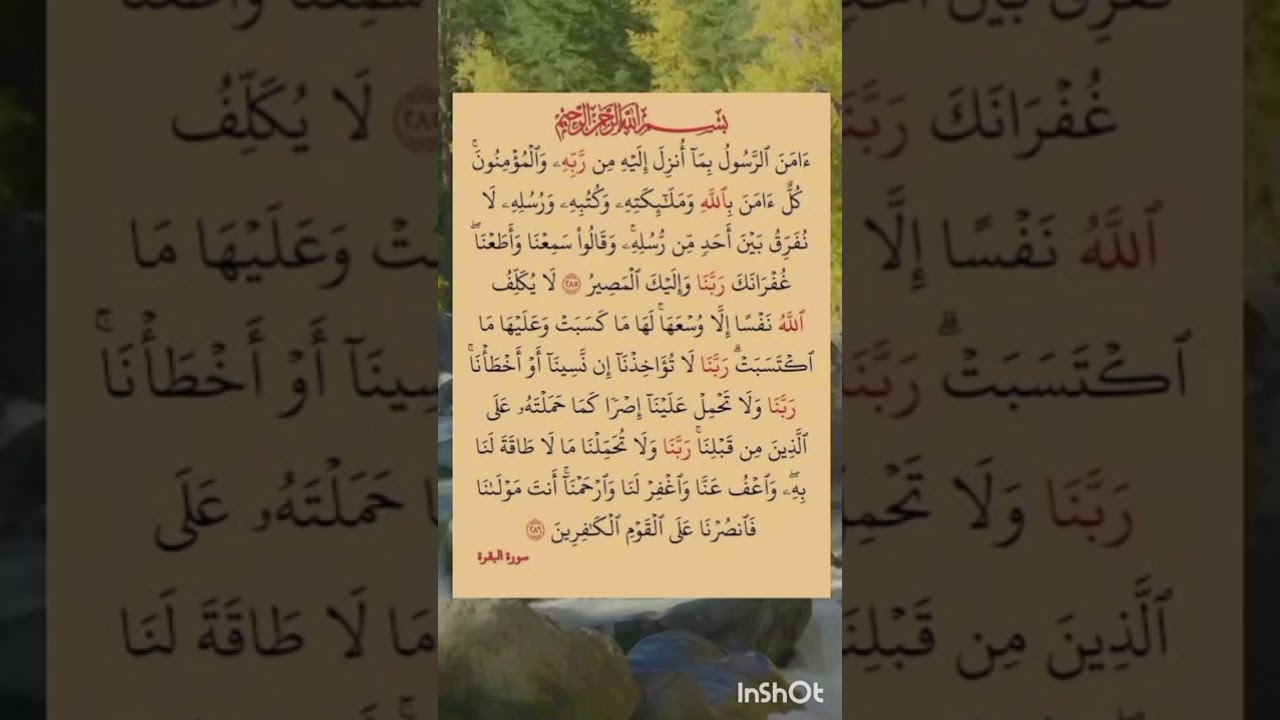 بسم الله الرحمن الرحيم
ءَامَنَ ٱلرَّسُولُ بِمَآ أُنزِلَ إِلَيۡهِ مِن رَّبِّهِۦ وَٱلۡمُؤۡمِنُونَۚ
كُلٌّ ءَامَنَ بِٱللَّهِ وَمَلَٰٓئِكَتِهِۦ وَكُتُبِهِۦ وَرُسُلِهِۦ لَا
نُفَرِّقُ بَيۡنَ أَحَدٖ مِّن رُّسُلِهِۦۚ وَقَالُواْ سَمِعۡنَا وَأَطَعۡنَاۖ
غُفۡرَانَكَ رَبَّنَا وَإِلَيۡكَ ٱلۡمَصِيرُ ٢٨٥ لَا يُكَلِّفُ
ٱللَّهُ نَفۡسًا إِلَّا وُسۡعَهَاۚ لَهَا مَا كَسَبَتۡ وَعَلَيۡهَا مَا
ٱكۡتَسَبَتۡۗ رَبَّنَا لَا تُؤَاخِذۡنَآ إِن نَّسِينَآ أَوۡ أَخۡطَأۡنَاۚ
رَبَّنَا وَلَا تَحۡمِلۡ عَلَيۡنَآ إِصۡرٗا كَمَا حَمَلۡتَهُۥ عَلَى
ٱلَّذِينَ مِن قَبۡلِنَاۚ رَبَّنَا وَلَا تُحَمِّلۡنَا مَا لَا طَاقَةَ لَنَا
بِهِۦۖ وَٱعۡفُ عَنَّا وَٱغۡفِرۡ لَنَا وَٱرۡحَمۡنَآۚ أَنتَ مَوۡلَىٰنَا
فَٱنصُرۡنَا عَلَى ٱلۡقَوۡمِ ٱلۡكَٰفِرِينَ ٢٨٦
سورة البقرة
InShOt